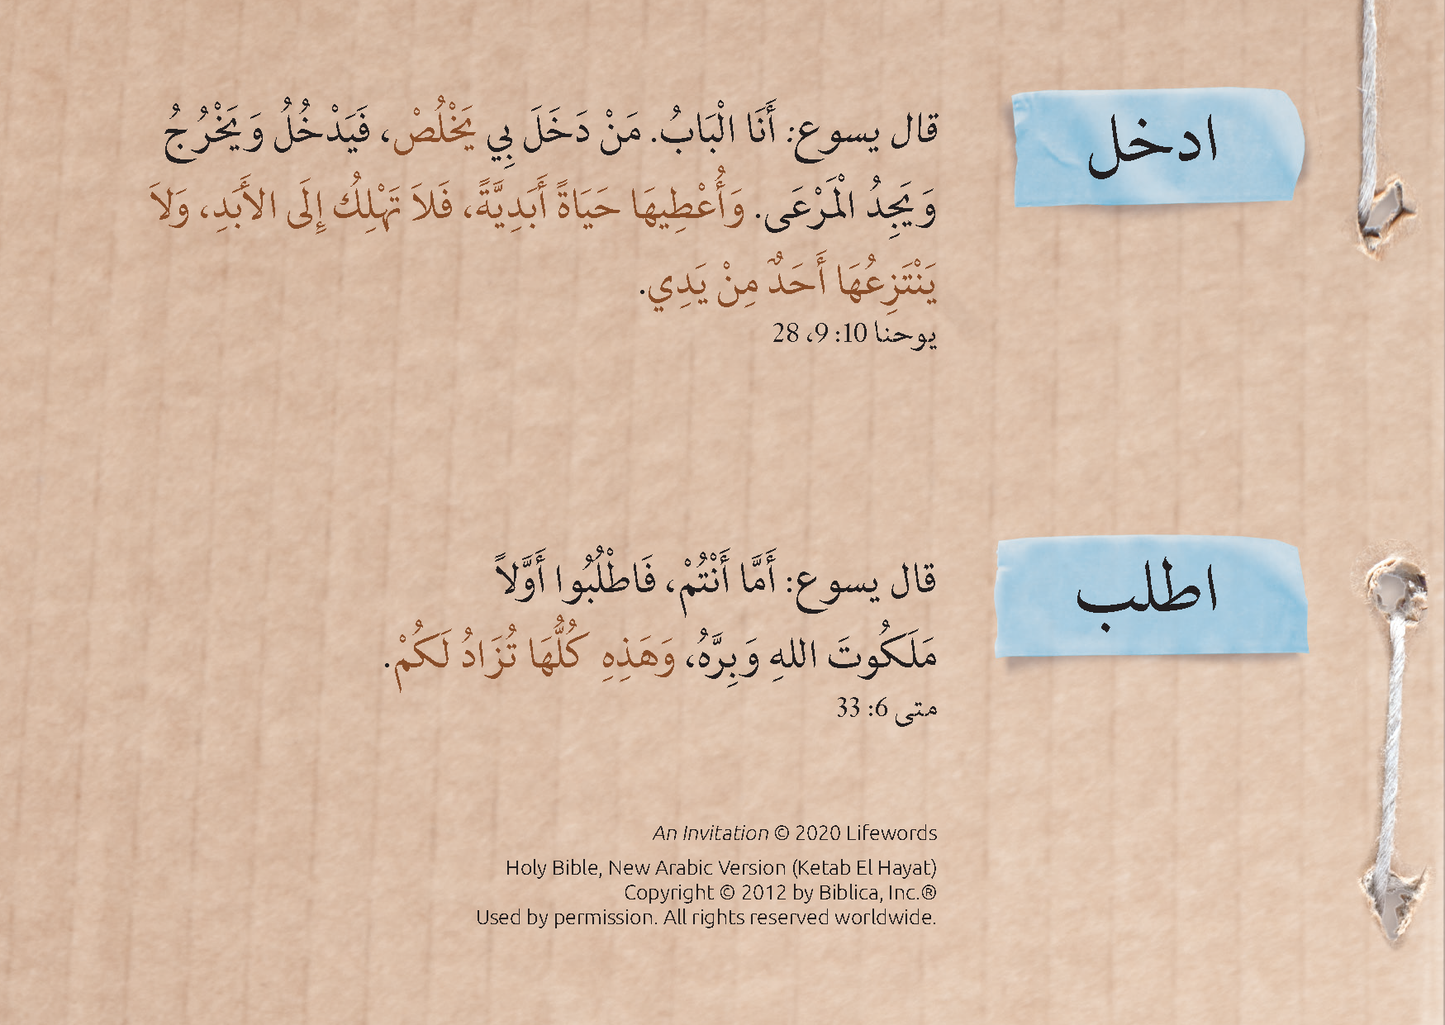 ادخل
قال يسوع: أَنَا الْبَابُ. مَنْ دَخَلَ بِي يَخْلُصْ، فَيَدْخُلُ وَيَخْرُجُ
وَيَجِدُ الْمَرْعَى. وَأُعْطِيهَا حَيَاةً أَبَدِيَّةً، فَلاَ تَهْلِكُ إِلَى الأَبَدِ، وَلاَ
يَنْتَزِعُهَا أَحَدٌ مِنْ يَدِي.
يوحنا 10: 9، 28
اطلب
قال يسوع: أَمَّا أَنْتُمْ، فَاطْلُبُوا أَوَّلاً
مَلَكُوتَ اللهِ وَبِرَّهُ، وَهَذِهِ كُلُّهَا تُزَادُ لَكُمْ.
متى 6: 33
An Invitation © 2020 Lifewords
Holy Bible, New Arabic Version (Ketab El Hayat)
Copyright © 2012 by Biblica, Inc.®
Used by permission. All rights reserved worldwide.